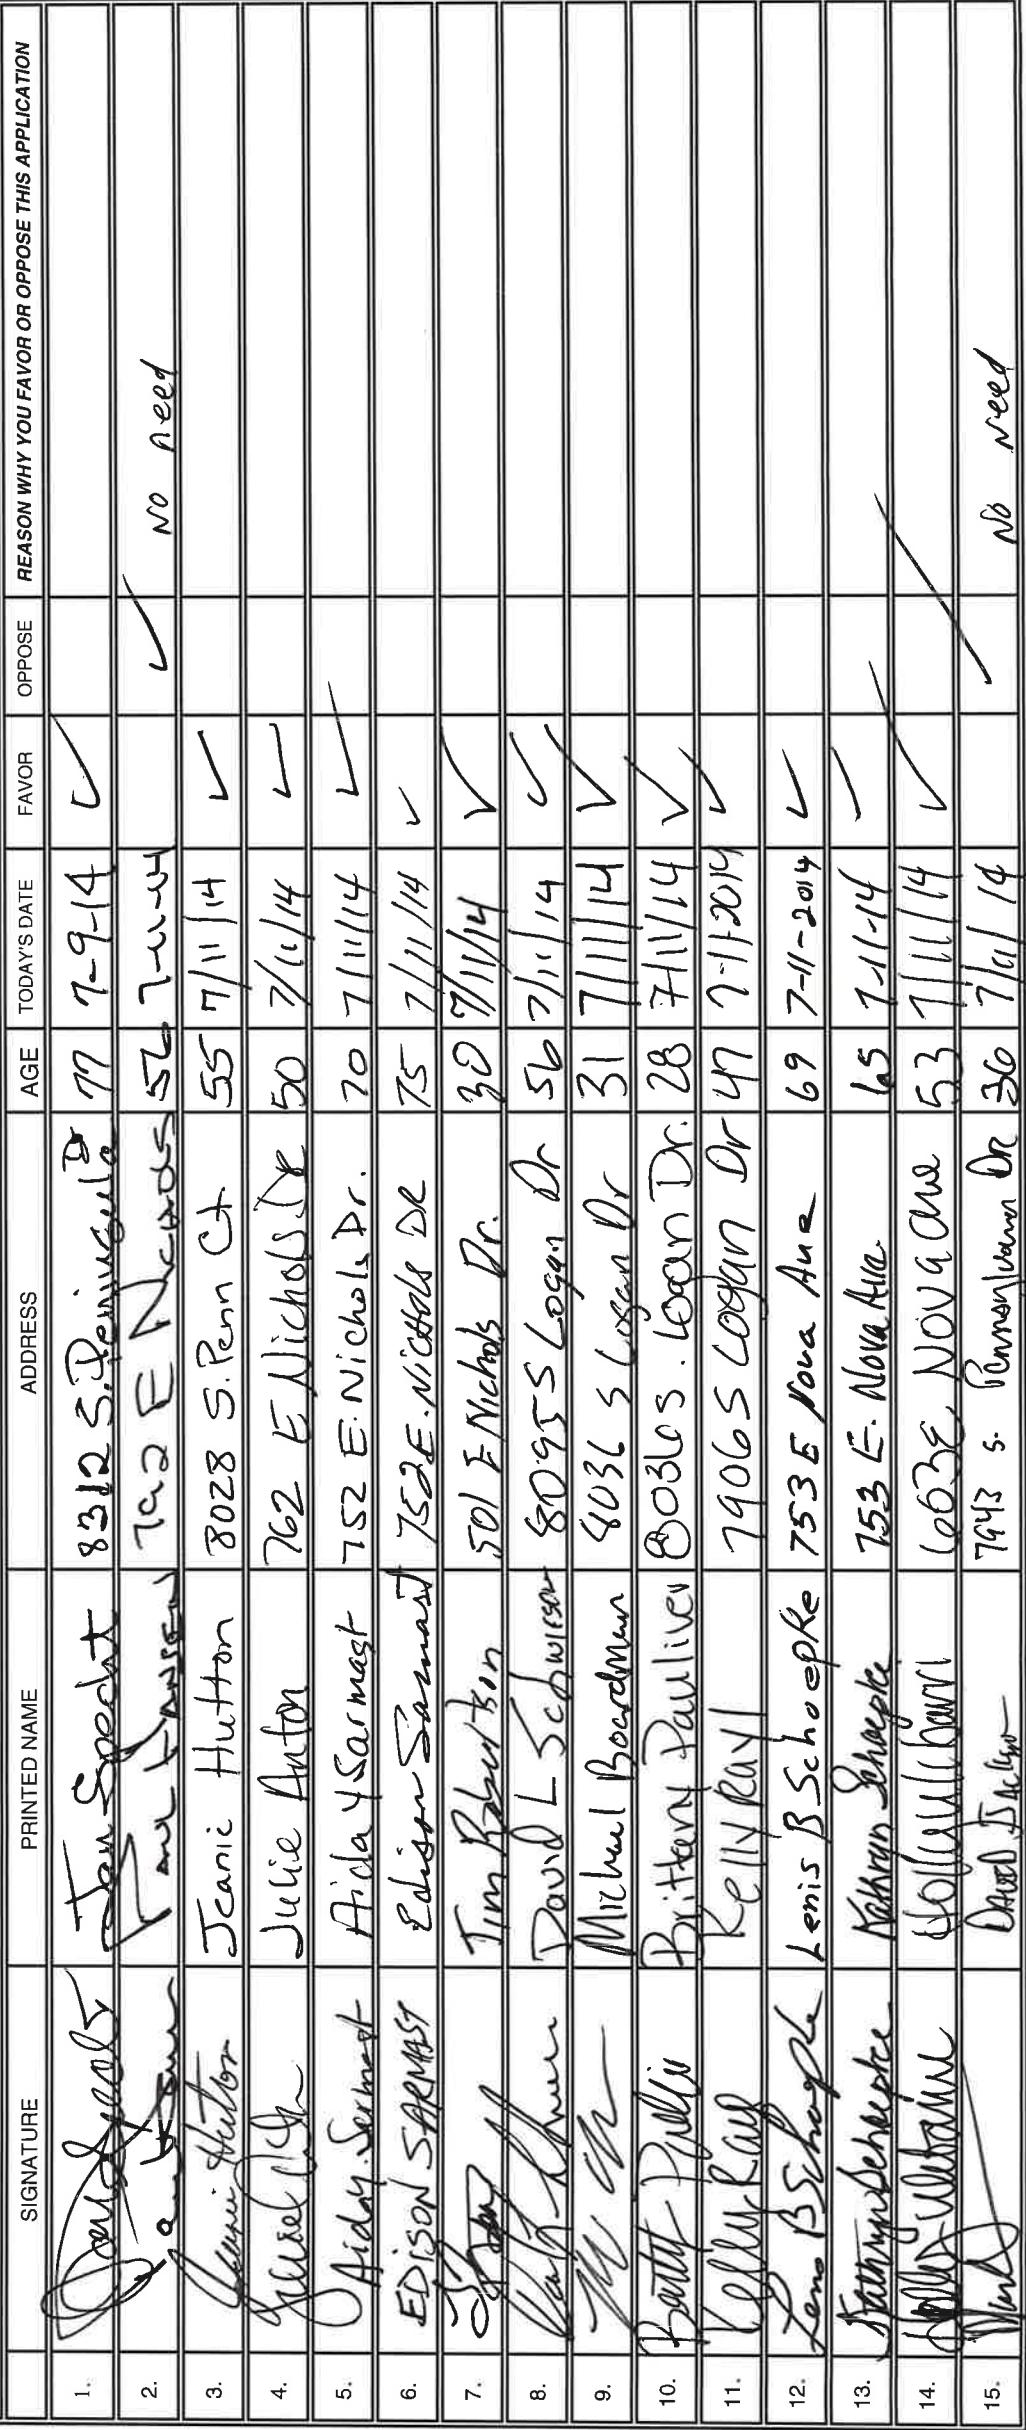 SIGNATURE PRINTED NAME ADDRESS AGE TODAY'S DATE FAVOR OPPOSE REASON WHY YOU FAVOR OR OPPOSE THIS APPLICATION
1. Jan Specht 8312 S. Peninsula Dr 77 7-9-14 ✓
2. E Nichols 56 ✓ No need
3. Jeanie Hutton Jeanie Hutton 8028 S. Penn Ct. 55 7/11/14 ✓
4. Julie Anton 762 E Nichols Dr 50 7/11/14 ✓
5. Aida Y. Sarmast Aida Y Sarmast 752 E. Nichols Dr. 70 7/11/14 ✓
6. EDISON SARMAST Edison Sarmast 752 E. Nichols DR 75 7/11/14 ✓
7. Tim Robertson 501 E Nichols Dr. 30 7/11/14 ✓
8. David L 8095 S Logan Dr 56 7/11/14 ✓
9. Michael Boardman 8036 S Logan Dr 31 7/11/14 ✓
10. Brittany Pauliver 8036 S. Logan Dr. 28 7/11/14 ✓
11. Kelly Rayl Kelly Rayl 7906 S Logan Dr 47 7-11-2014 ✓
12. Lenis B Schoepke Lenis B Schoepke 753 E Nova Ave 69 7-11-2014 ✓
13. Kathryn Schoepke Kathryn Schoepke 753 E. Nova Ave. 65 7-11-14 ✓
14. 663 E, Nova Ave 53 7/11/14 ✓
15. David Jackson 7943 S. Pennsylvania DR 36 7/11/14 ✓ No Need